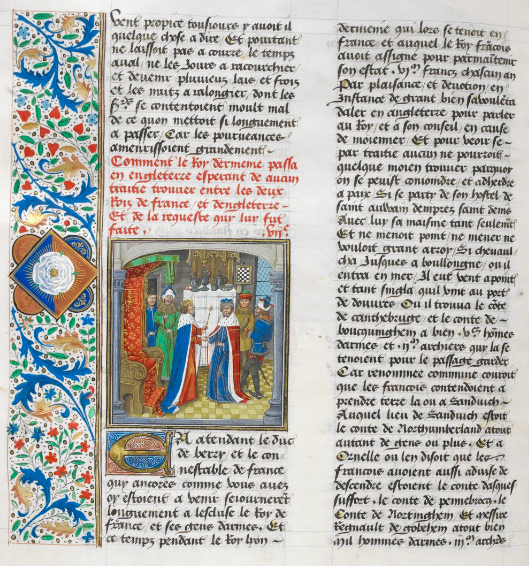 vent propice tousiours y auoit il
quelque chose a dire Et pourtant
ne laissoit pas a courre le temps
aual ne les Jours a racourcher
et deuenir pluuieux lais et frois
et les nuits a ralongier, dont les
se contentoient moult mal
de ce quon mettoit si longuement
a passer, Car les pourueances
amenrissoient grandement
Comment le Roy dermenie passa
en engleterre esperant de aucun
traitie trouuer entre les deux
Rois de france et dengleterre
Et de la requeste qui luy fut
faite
En atendant le duc
de berry et le con
nestable de france
qui ancores comme vous auez
oy estoient a venir seiourneret
longuement a lescluse le Roy de
france, et ses gens darmes, Et
ce temps pendant le Roy lyon
dermenie qui lors se tenoit en
france et auquel le Roy francois
auoit assigne pour parmaintenir
son estat francz chascun an
Par plaisance, et deuotion, en
Instance de grant bien
daler en angleterre pour parler
au Roy, et a son conseil, en cause
de moienner, Et pour veoir se
par traitie aucun ne pourroit
quelque moien trouuer parquoy
on se peuist conioindre, et adherdre
a paix Si se parti de son hostel de
saint dempres saint denis
Auec luy sa maisnie tant seulemt
Et ne menoit point, ne mener ne
vouloit grant arroy, Si cheuau
cha Jusques a boullongne, ou il
entra en mer, Il eut vent a point
et tant singla quil vint au port
de douures, Ou il trouua le cote
de cantebruge et le conte de
bouquinghem a bien hommes
darmes et archiers qui la se
tenoient pour le passage garder
Car renommee commune couroit
que les francois contendoient a
prendre terre la ou a Sanduich
Auquel lieu de Sanduich estoit
le conte de Northumberland atout
autant de gens ou plus, Et a
Ornelle ou len disoit que les
francois auoient aussi aduise de
descendre estoient le conte
suffort, le conte de pennebroc, le
Conte de Nortinghem, Et messire
Regnault de gobehem atout bien
mil hommes darmes